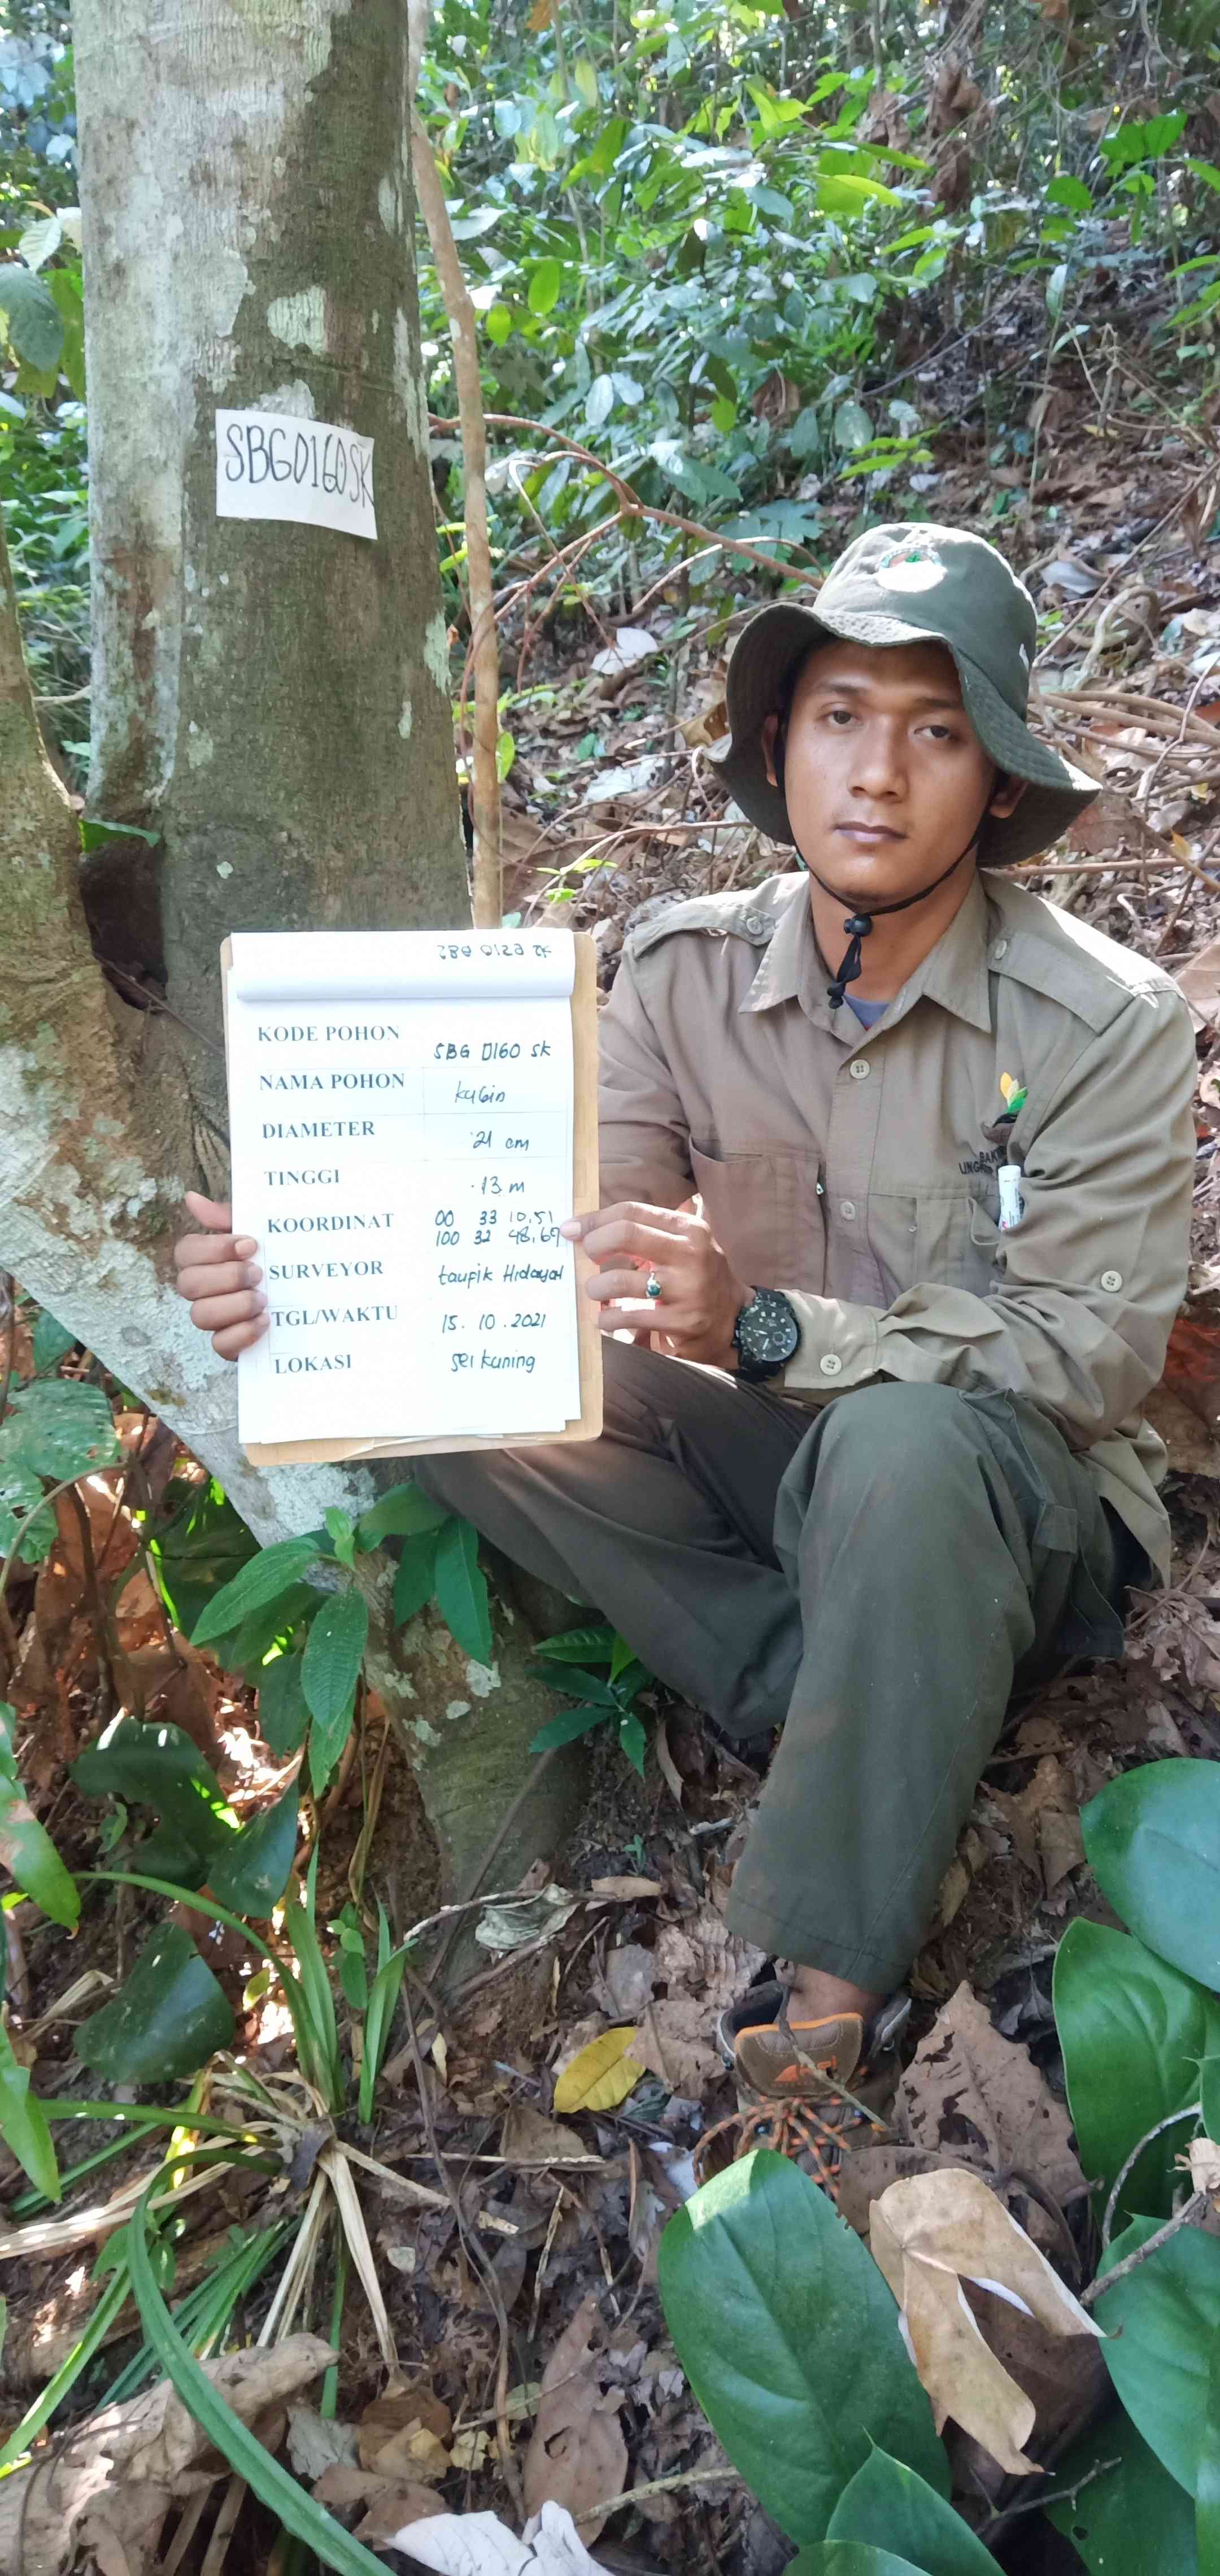 SBG0160SK
KODE POHON SBG 0160 SK
NAMA POHON kubin
DIAMETER 21 cm
TINGGI 13 m
KOORDINAT 00 33 10,51
100 32 48,69
SURVEYOR taufik Hidayat
TGL/WAKTU 15. 10. 2021
LOKASI sei kuning
BAK